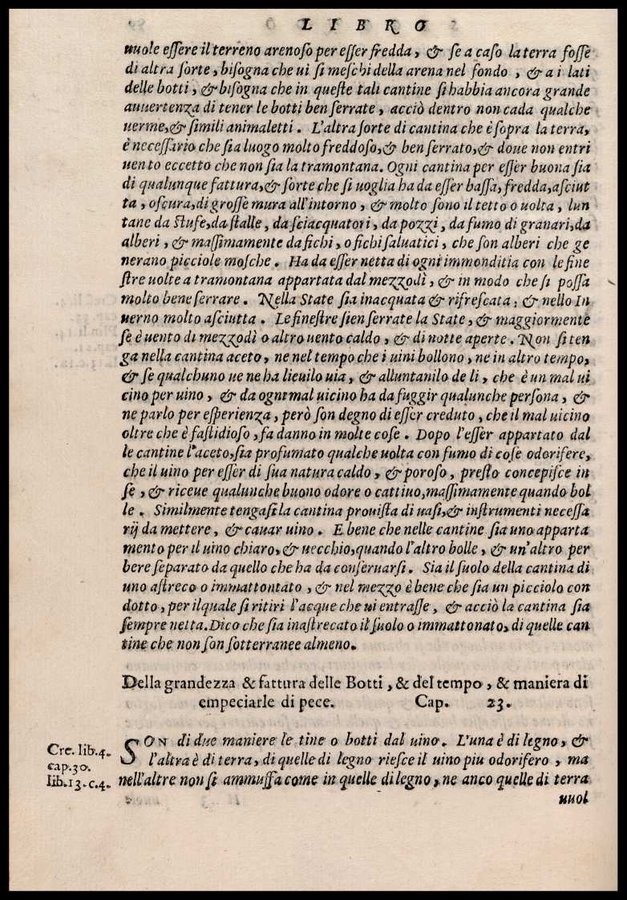 LIBRO
uuole essere il terreno arenoso per esser fredda, & se a caso la terra fosse
di altra sorte, bisogna che ui si meschi della arena nel fondo, & a i lati
delle botti, & bisogna che in queste tali cantine si habbia ancora grande
auuertenza di tener le botti ben serrate, acciò dentro non cada qualche
uerme, & simili animaletti. L'altra sorte di cantina che è sopra la terra,
è necessario che sia luogo molto freddoso, & ben serrato, & doue non entri
uento eccetto che non sia la tramontana. Ogni cantina per esser buona sia
di qualunque fattura, & sorte che si uoglia ha da esser bassa, fredda, asciut
ta, oscura, di grosse mura all'intorno, & molto sono il tetto o uolta, lun
tane da stufe, da stalle, da sciacquatori, da pozzi, da fumo di granari, da
alberi, & massimamente da fichi, o fichi saluatici, che son alberi che ge
nerano picciole mosche. Ha da esser netta di ogni immonditia con le fine
stre uolte a tramontana appartata dal mezzodì, & in modo che si possa
molto bene serrare. Nella State sia inacquata & rifrescata; & nello In
uerno molto asciutta. Le finestre sien serrate la State, & maggiormente
se è uento di mezzodì o altro uento caldo, & di notte aperte. Non si ten
ga nella cantina aceto, ne nel tempo che i uini bollono, ne in altro tempo,
& se qualchuno ue ne ha lieuilo uia, & alluntanilo de li, che è un mal ui
cino per uino, & da ogni mal uicino ha da fuggir qualunche persona, &
ne parlo per esperienza, però son degno di esser creduto, che il mal uicino
oltre che è fastidioso, fa danno in molte cose. Dopo l'esser appartato dal
le cantine l'aceto, sia profumato qualche uolta con fumo di cose odorifere,
che il uino per esser di sua natura caldo, & poroso, presto concepisce in
se, & riceue qualunche buono odore o cattiuo, massimamente quando bol
le. Similmente tengasi la cantina prouista di uasi, & instrumenti necessa
rij da mettere, & cauar uino. E bene che nelle cantine sia uno apparta
mento per il uino chiaro, & uecchio, quando l'altro bolle, & un'altro per
bere separato da quello che ha da conseruarsi. Sia il suolo della cantina di
uno astreco o immattontato, & nel mezzo è bene che sia un picciolo con
dotto, per il quale si ritiri l'acque che ui entrasse, & acciò la cantina sia
sempre netta. Dico che sia inastrecato il suolo o immattonato, di quelle can
tine che non son sotterranee almeno.
Della grandezza & fattura delle Botti, & del tempo, & maniera di
empeciarle di pece. Cap. 23.
Cre. lib. 4.
cap. 30.
lib. 13. c. 4.
SON di due maniere le tine o botti dal uino. L'una è di legno, &
l'altra è di terra, di quelle di legno riesce il uino piu odorifero, ma
nell'altre non si ammuffa come in quelle di legno, ne anco quelle di terra
uuol